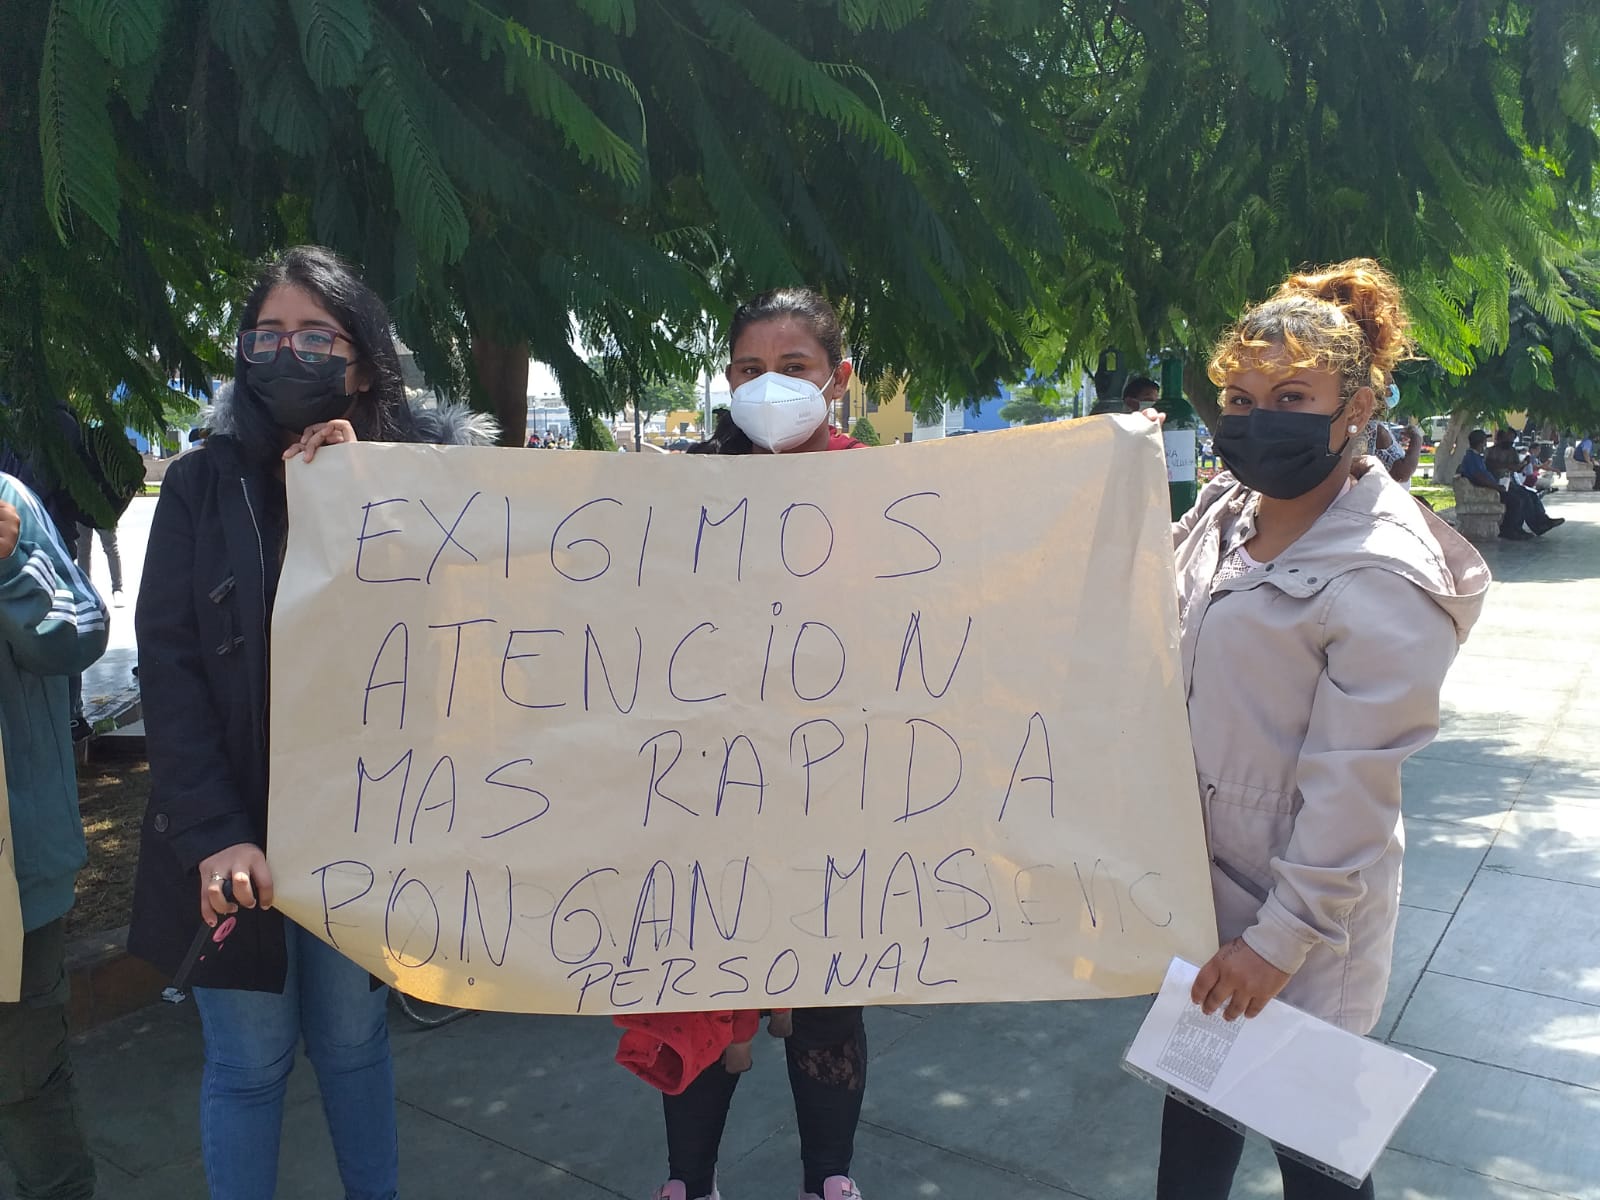 EXIGIMOS
ATENCION
MAS RAPIDA
PONGAN MAS
PERSONAL